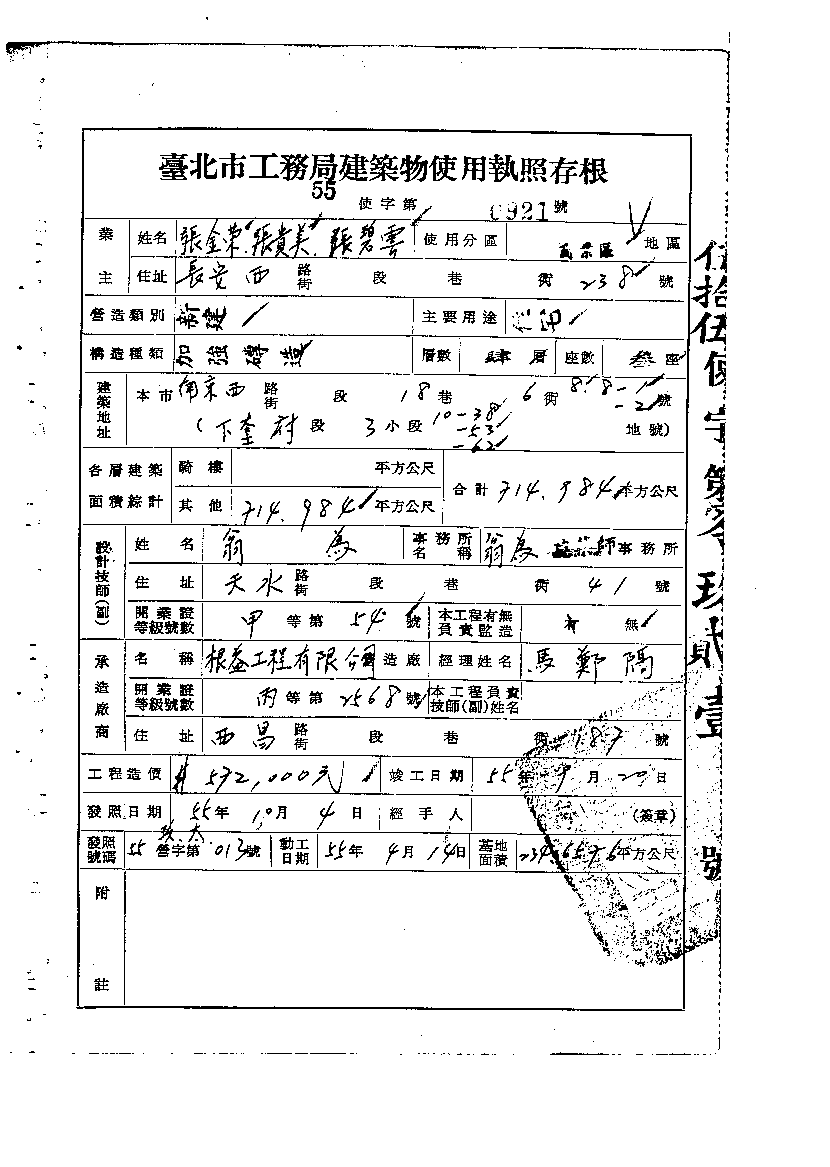 臺北市工務局建築物使用執照存根
55 使字第 0921 號
業主 姓名 張金榮 張貴美 張碧雲 使用分區 地區
住址 長安西 路街 段 巷 街 238 號
營造類別 新建 主要用途 住宅
構造種類 加強磚造 層數 肆層 座數 叁座
建築地址 本市 南京西 路街 段 18 巷 6 街 8. 8-1 -2 號
(下奎府段 3 小段 10-38 -53 -62 地號)
各層建築面積綜計 騎樓 平方公尺 合計 714.984 平方公尺
其他 714.984 平方公尺
設計技師(副) 姓名 翁為 事務所名稱 翁為 師事務所
住址 天水 路街 段 巷 街 41 號
開業證等級號數 甲等第 54 號 本工程有無負責監造 有 無
承造廠商 名稱 根益工程有限公司 造廠 經理姓名 馬鄭隔
開業證等級號數 丙等第 2568 號 本工程負責技師(副)姓名
住址 西昌 路街 段 巷 街 187 號
工程造價 572,000元 竣工日期 55年 9月 20日
發照日期 55年 10月 4日 經手人 (簽章)
發照號碼 55 營字第 013 號 動工日期 55年 4月 14日 基地面積 234.6576 平方公尺
附註
伍拾伍使字第零玖貳壹號